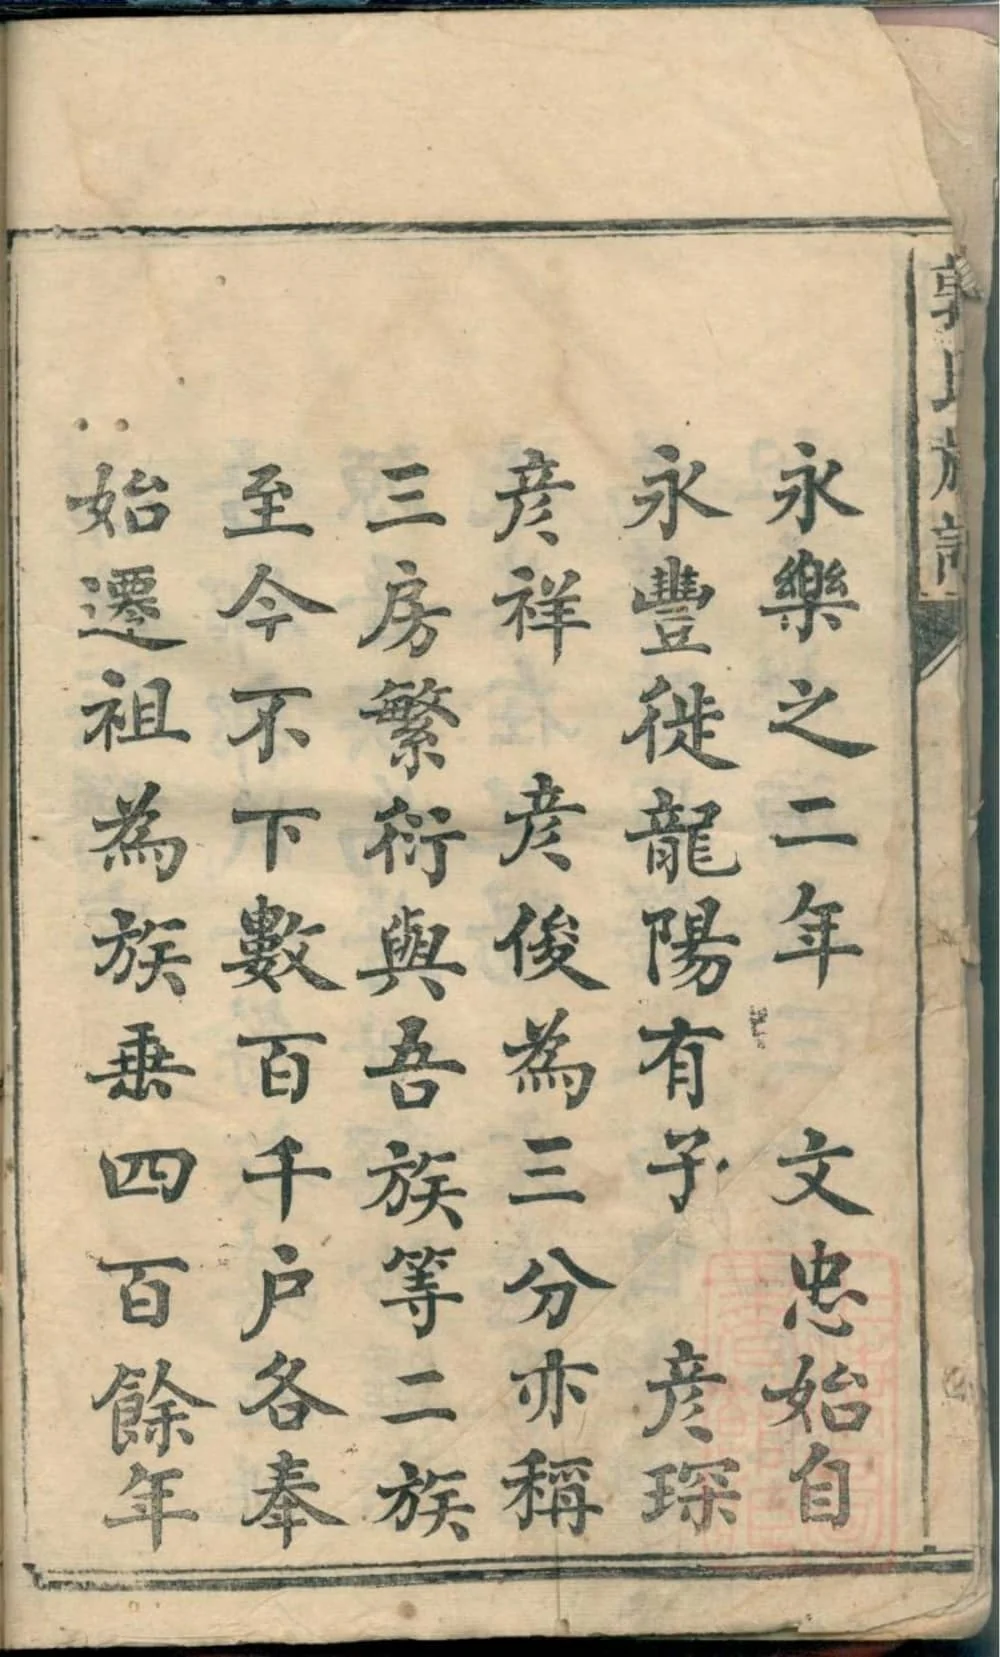 郭氏族譜
永樂之二年　文忠始自
永豐徙龍陽有子　彦琛
彦祥　彦俊為三分亦稱
三房繁衍與吾族等二族
至今不下數百千户各奉
始遷祖為族乗四百餘年